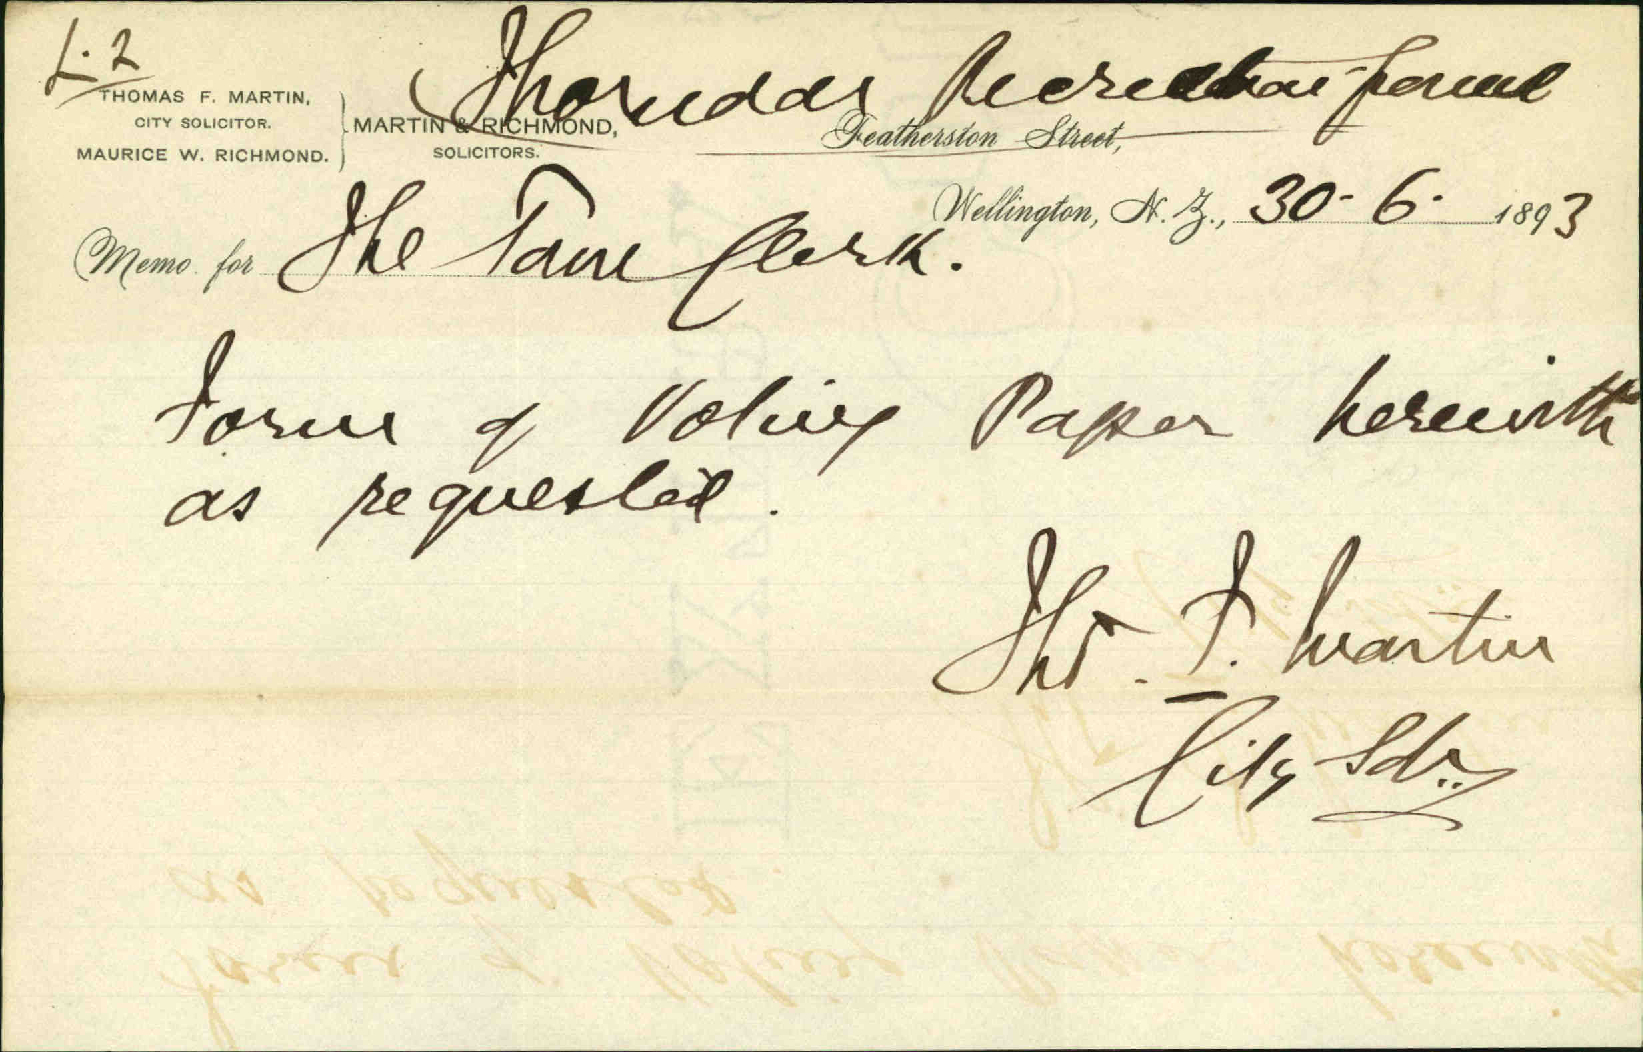 L. 2
Thorndon Recreation ground
THOMAS F. MARTIN,
CITY SOLICITOR.
MAURICE W. RICHMOND.
MARTIN & RICHMOND,
SOLICITORS.
Featherston Street,
Wellington, N.Z., 30 - 6 - 1893
Memo for The Town Clerk.
Form of Voting Paper herewith
as requested.
Thos. F. Martin
City Solr.